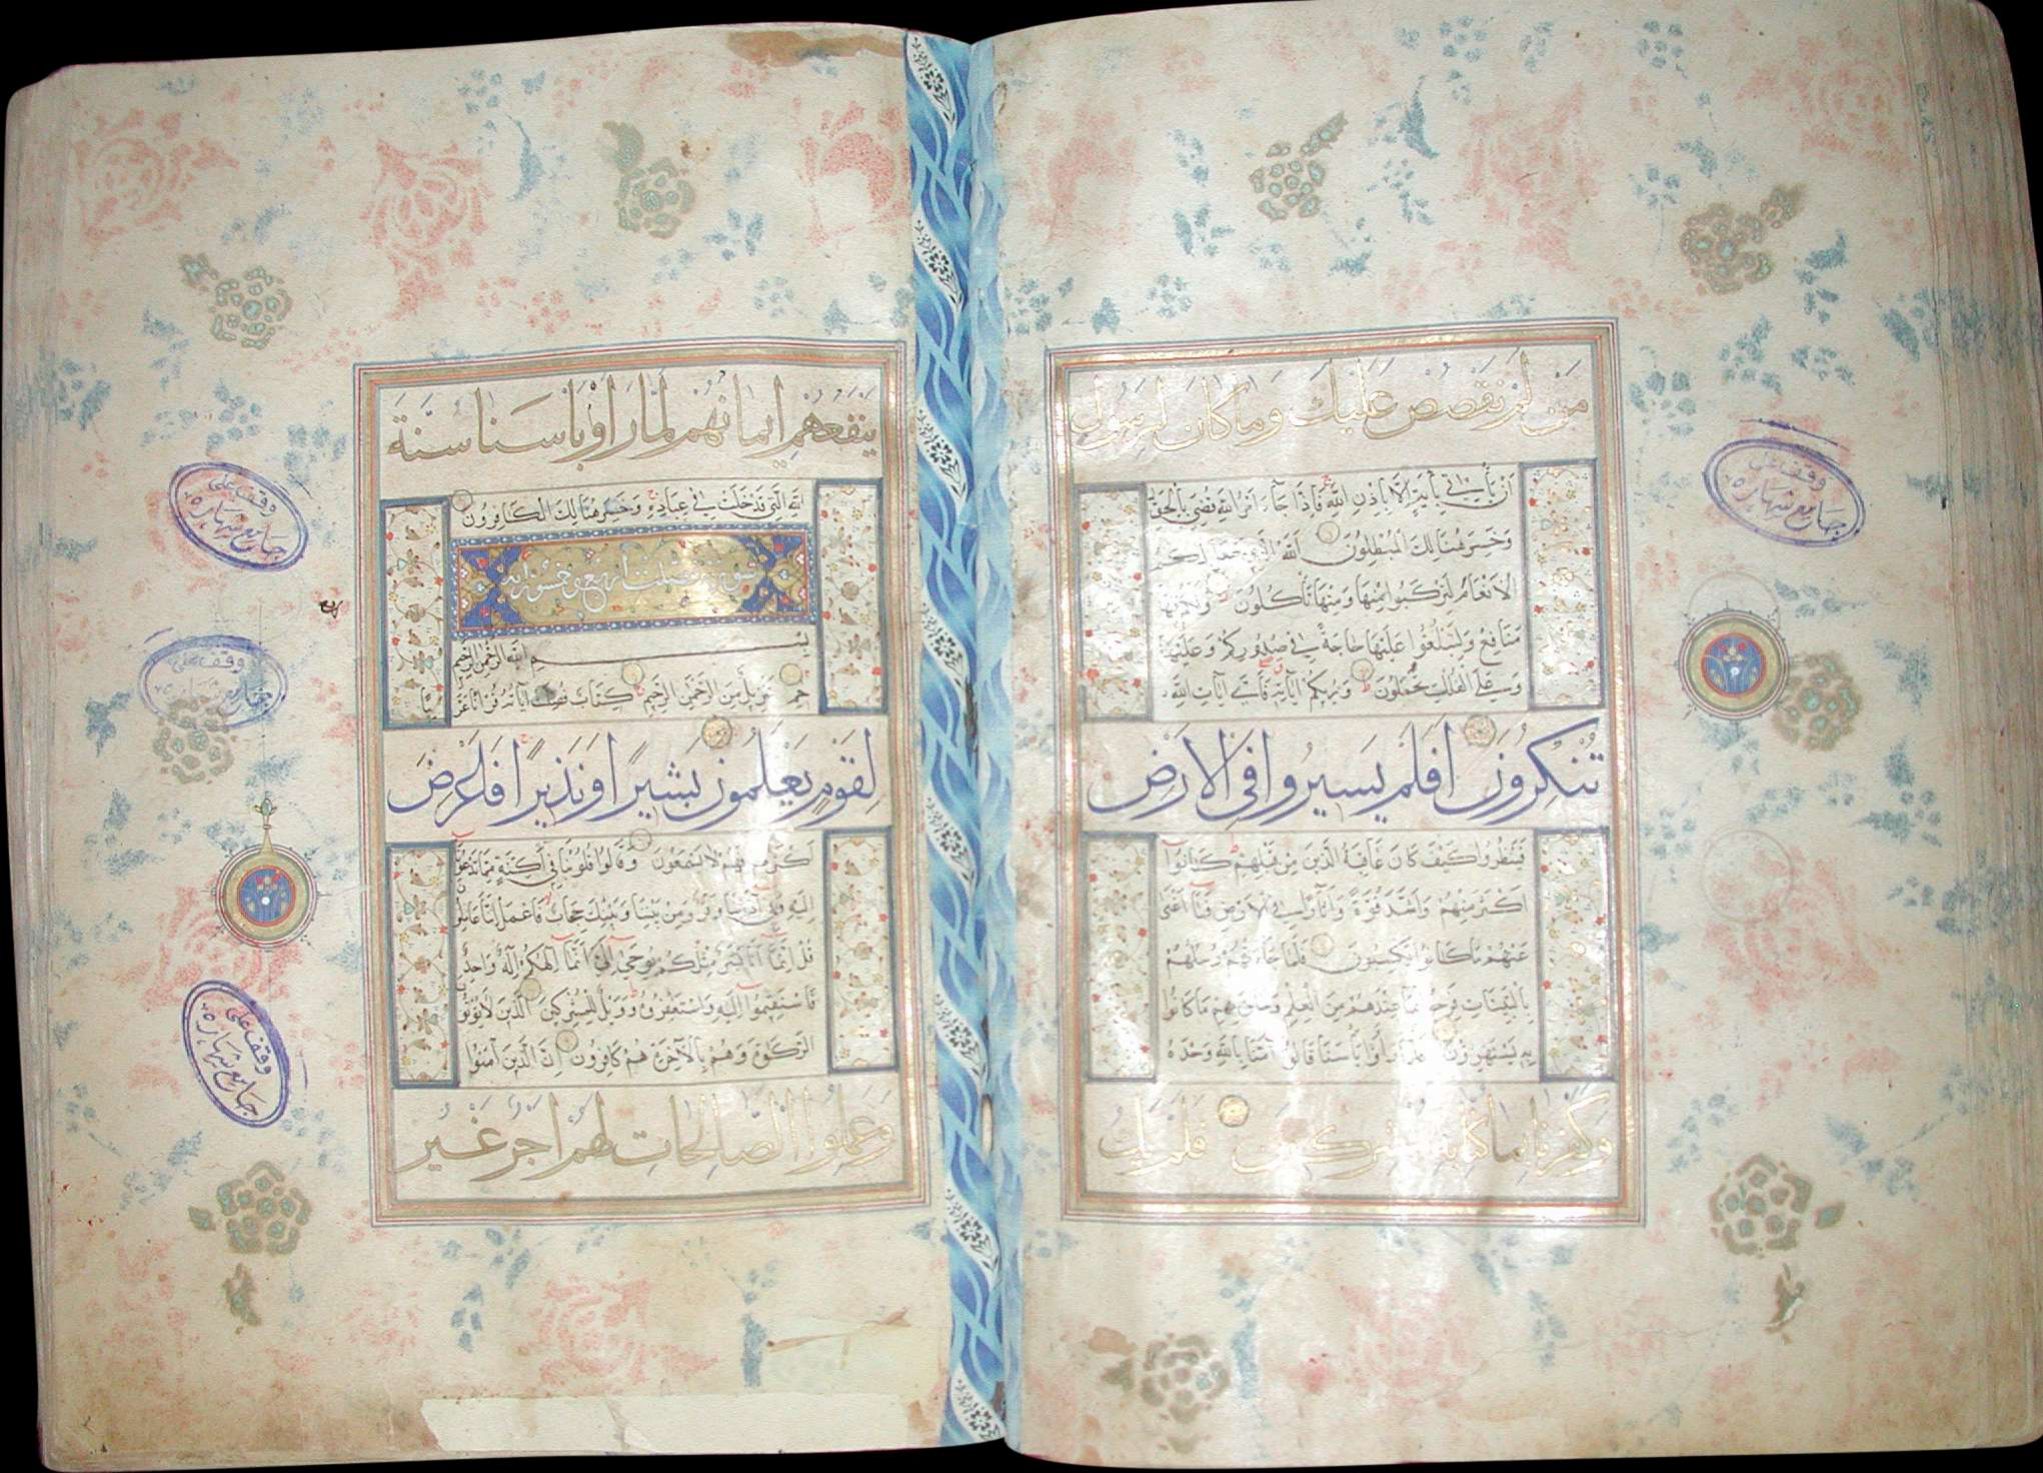 من لم نقصص عليك وما كان لرسول
ان يأتي بآية الا باذن الله فاذا جاء امر الله قضي بالحق
وخسر هنالك المبطلون الله الذي جعل لكم
الانعام لتركبوا منها ومنها تأكلون ولكم فيها
منافع ولتبلغوا عليها حاجة في صدوركم وعليها
وعلى الفلك تحملون ويريكم آياته فأي آيات الله
تنكرون افلم يسيروا في الارض
فينظروا كيف كان عاقبة الذين من قبلهم كانوا
اكثر منهم واشد قوة وآثارا في الارض فما اغنى
عنهم ما كانوا يكسبون فلما جاءتهم رسلهم
بالبينات فرحوا بما عندهم من العلم وحاق بهم ما كانوا
به يستهزؤن فلما رأوا بأسنا قالوا آمنا بالله وحده
وكفرنا بما كنا به مشركين فلم يك
ينفعهم ايمانهم لما رأوا بأسنا سنة
الله التي قد خلت في عباده وخسر هنالك الكافرون
سورة فصلت اربع وخمسون آية
بسم الله الرحمن الرحيم
حم تنزيل من الرحمن الرحيم كتاب فصلت آياته قرآنا عربيا
لقوم يعلمون بشيرا ونذيرا فاعرض
اكثرهم فهم لا يسمعون وقالوا قلوبنا في اكنة مما تدعونا
اليه وفي آذاننا وقر ومن بيننا وبينك حجاب فاعمل اننا عاملون
قل انما انا بشر مثلكم يوحى الي انما الهكم اله واحد
فاستقيموا اليه واستغفروه وويل للمشركين الذين لا يؤتون
الزكوة وهم بالآخرة هم كافرون ان الذين آمنوا
وعملوا الصالحات لهم اجر غير
وقف على
جامع شهاره
وقف على
جامع شهاره
وقف على
وقف على
جامع شهاره